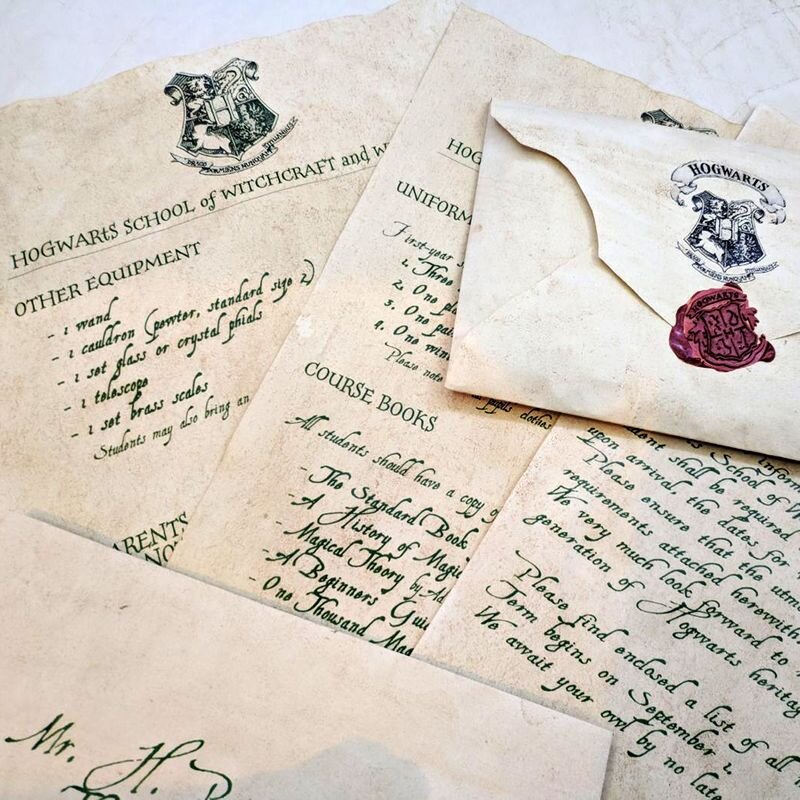 HOGWARTS SCHOOL of WITCHCRAFT and
OTHER EQUIPMENT
- 1 wand
- 1 cauldron (pewter, standard size 2)
- 1 set glass or crystal phials
- 1 telescope
- 1 set brass scales
Students may also bring an
ARENTS
UNIFORM
First-year
1. Three
2. One
3. One
4. One
Please note
pupils clothes
COURSE BOOKS
All students should have a copy
- The Standard Book
- A History of Magi
- Magical Theory by Ad
- A Beginners Gui
- One Thousand Mag
HOGWARTS
HOGWARTS
School of
shall be required
upon arrival, the dates for
Please ensure that the utm
requirements attached herewith
We very much look forward to
generation of Hogwarts heritag
Please find enclosed a list of all
Term begins on September 1.
We await your owl by no late
Mr. H.